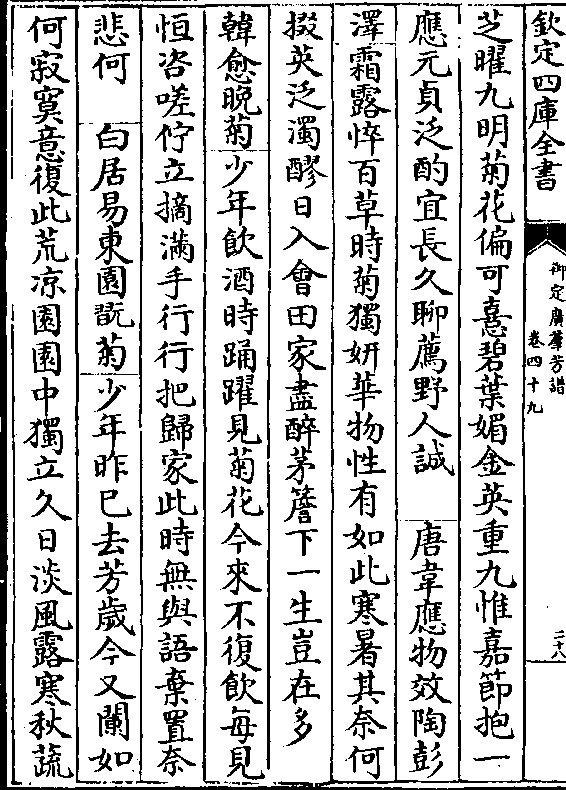 欽定四庫全書
御定廣羣芳譜
卷四十九
二十八
芝曜九明菊花偏可憙碧葉媚金英重九惟嘉節抱一
應元貞泛酌宜長久聊薦野人誠　唐韋應物效陶彭
澤霜露悴百草時菊獨妍華物性有如此寒暑其奈何
掇英泛濁醪日入會田家盡醉茅簷下一生豈在多
韓愈晚菊少年飲酒時踊躍見菊花今來不復飲每見
恒咨嗟佇立摘滿手行行把歸家此時無與語棄置奈
悲何　白居易東園翫菊少年昨已去芳歲今又闌如
何寂寞意復此荒凉園園中獨立久日淡風露寒秋蔬